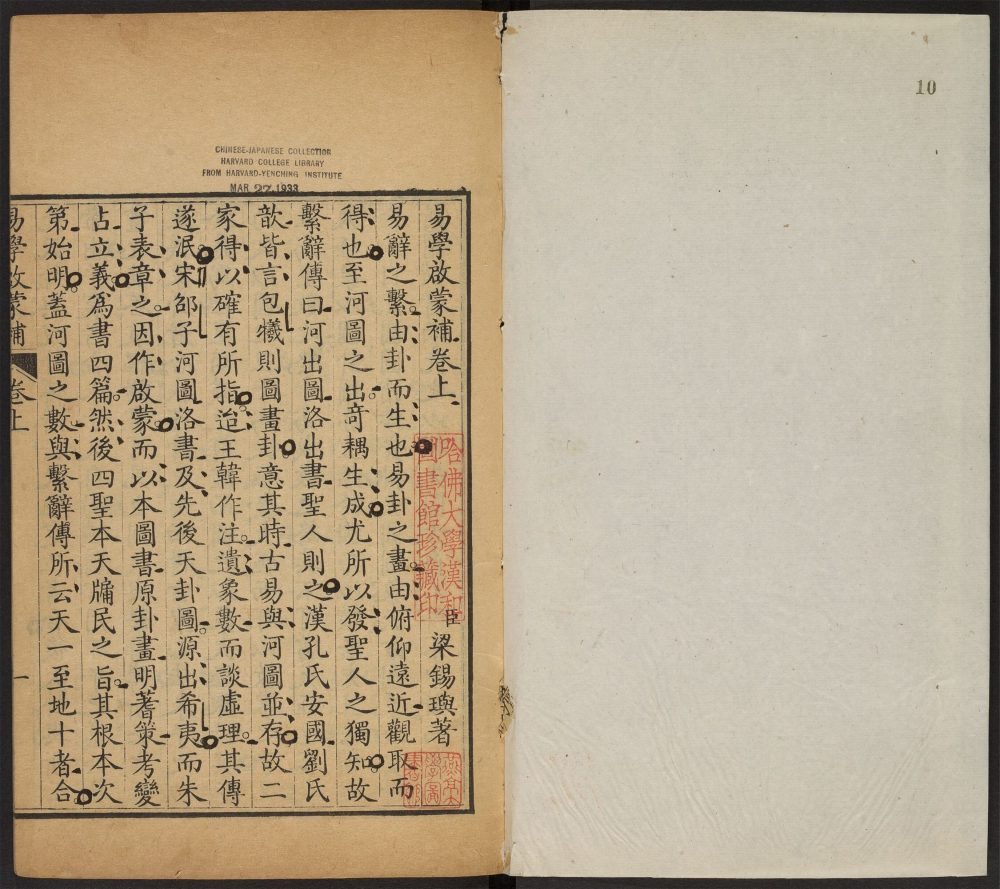 10
CHINESE-JAPANESE COLLECTION
HARVARD COLLEGE LIBRARY
FROM HARVARD-YENCHING INSTITUTE
MAR 27 1933
易學啟蒙補卷上
哈佛大學漢和
圖書館珍藏印
臣梁錫璵著
易辭之繫由卦而生也易卦之畫由俯仰遠近觀取而
得也至河圖之出奇耦生成尤所以發聖人之獨知故
繫辭傳曰河出圖洛出書聖人則之漢孔氏安國劉氏
歆皆言包犧則圖畫卦意其時古易與河圖並存故二
家得以確有所指迨王韓作注遺象數而談虛理其傳
遂泯宋邵子河圖洛書及先後天卦圖源出希夷而朱
子表章之因作啟蒙而以本圖書原卦畫明蓍策考變
占立義爲書四篇然後四聖本天牖民之旨其根本次
第始明蓋河圖之數與繫辭傳所云天一至地十者合
易學啟蒙補
卷上
一